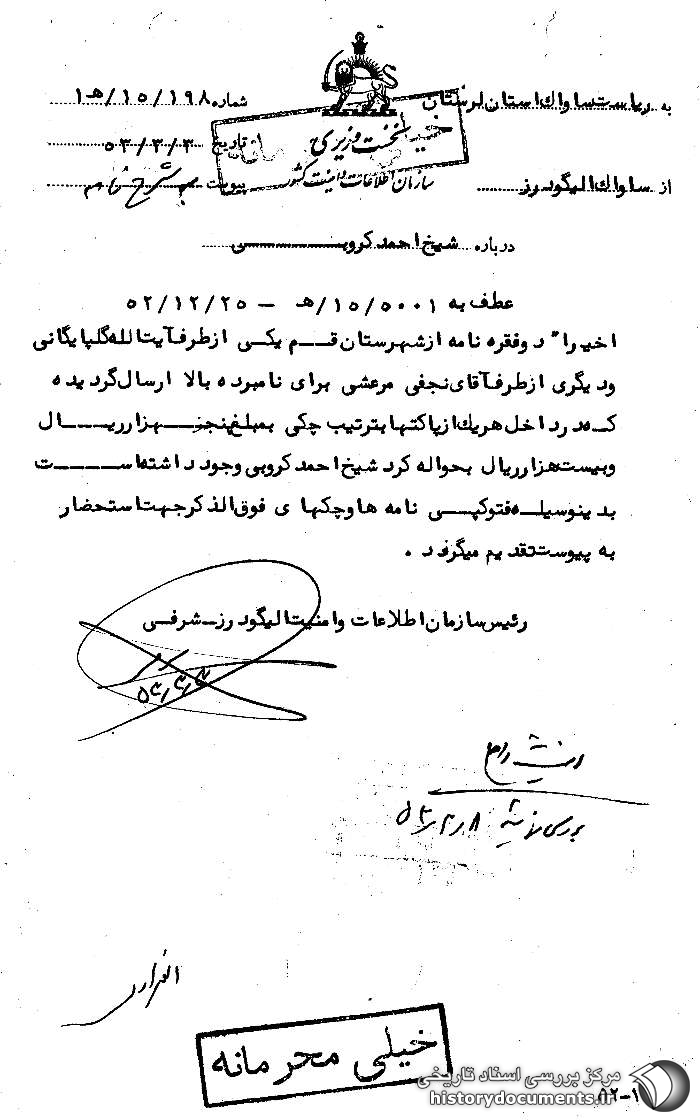 به ریاست ساواک استان لرستان
شماره ۱۹۸/۱۵/هـ۱
نخست وزیری
خیلی محرمانه
تاریخ ۵۳/۳/۳
سازمان اطلاعات و امنیت کشور
از ساواک الیگودرز
پیوست بشرح نامه
درباره شیخ احمد کروبی
عطف به ۵۰۰۱/۱۵/هـ - ۵۲/۱۲/۲۵
اخیرا" دوفقره نامه از شهرستان قم یکی ازطرف آیت الله گلپایگانی
ودیگری ازطرف آقای نجفی مرعشی برای نامبرده بالا ارسال گردیده
که درداخل هریک ازپاکتها بترتیب چکی بمبلغ پنجهزار ریال
وبیست هزار ریال بحواله کرد شیخ احمد کروبی وجود داشته است
بدینوسیله فتوکپی نامه ها وچکهای فوق الذکر جهت استحضار
به پیوست تقدیم میگردد .
رئیس سازمان اطلاعات وامنیت الیگودرز - شرفی
خیلی محرمانه
۵۲-۱
مرکز بررسی اسناد تاریخی
historydocuments.ir